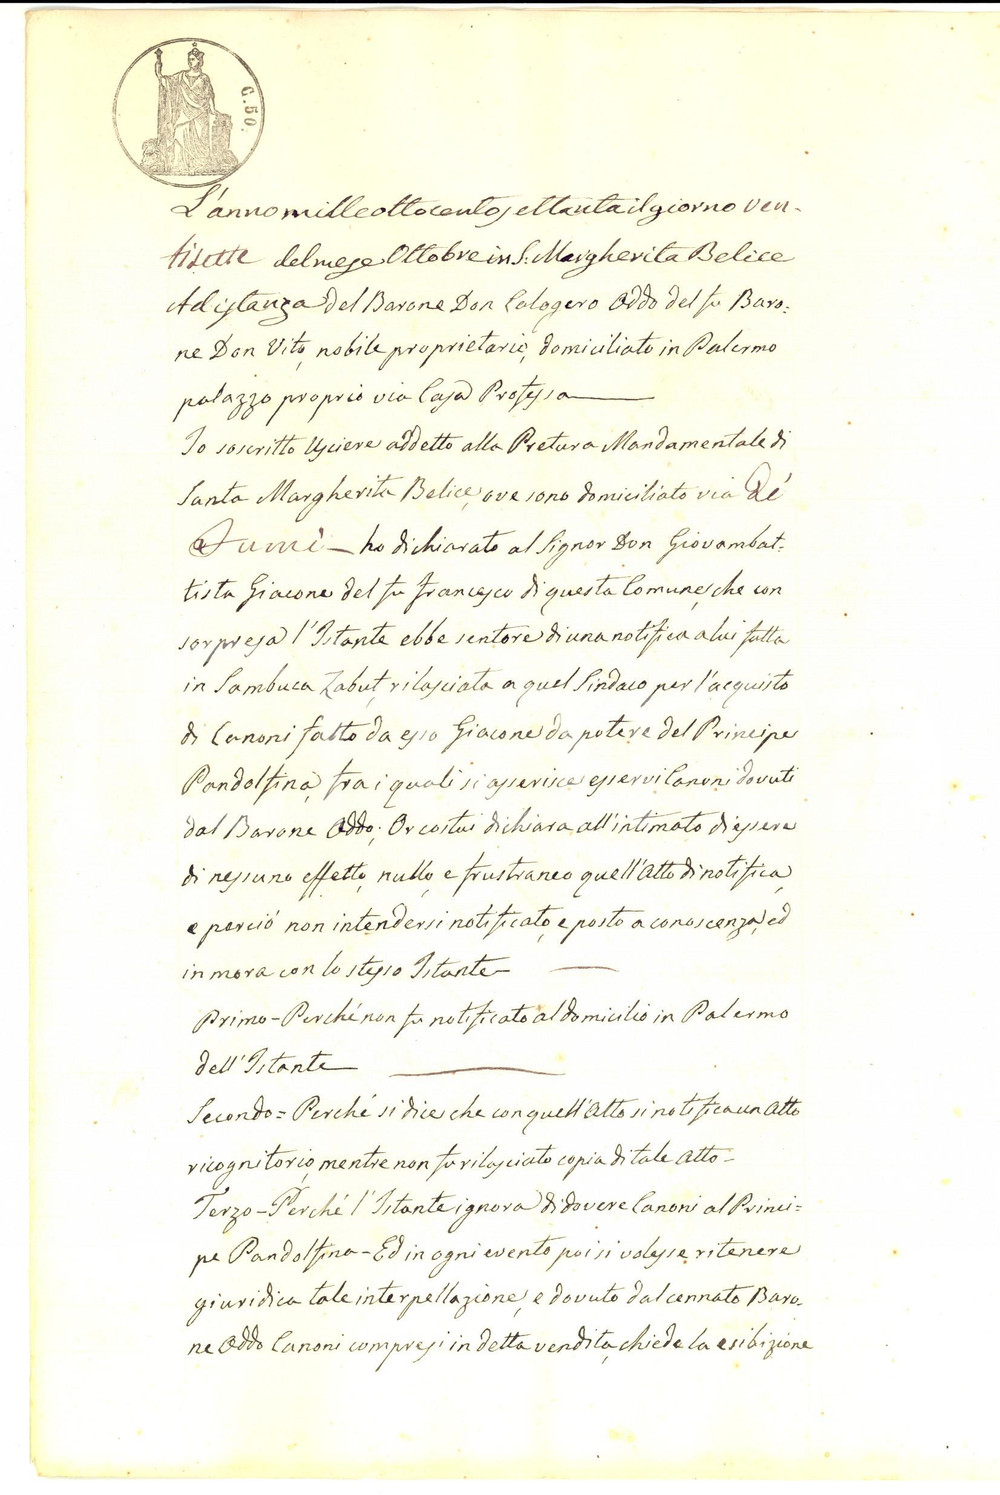 C. 50.
L'anno mille ottocento settanta il giorno ven-
tisette del mese Ottobre in S. Margherita Belice
Ad istanza del Barone Don Calogero Oddo del fu Baro=
ne Don Vito, nobile proprietario, domiciliato in Palermo
palazzo proprio via Casa Professa
Io soscritto Usciere addetto alla Pretura Mandamentale di
Santa Margherita Belice, ove sono domiciliato via De'
ho dichiarato al Signor Don Giovambat-
tista Giacone del fu Francesco di questa Comune, che con
sorpresa l'Istante ebbe sentore di una notifica a lui fatta
in Sambuca Zabut, rilasciata a quel Sindaco per l'acquisto
di Canoni fatto da esso Giacone da potere del Principe
Pandolfina, fra i quali si asserisce esservi Canoni dovuti
dal Barone Oddo; Or costui dichiara all'intimato di essere
di nessuno effetto, nullo, e frustraneo quell'Atto di notifica,
e perciò non intendersi notificato, e posto a conoscenza, ed
in mora con lo stesso Istante—
Primo— Perché non fu notificato al domicilio in Palermo
dell'Istante—
Secondo= Perché si dice che con quell'Atto si notifica un Atto
ricognitorio, mentre non fu rilasciato copia di tale Atto—
Terzo— Perché l'Istante ignora di dovere Canoni al Princi=
pe Pandolfina— Ed in ogni evento poi si volesse ritenere
giuridica tale interpellazione, e dovuto dal cennato Baro-
ne Oddo Canoni compresi in detta vendita, chiede la esibizione